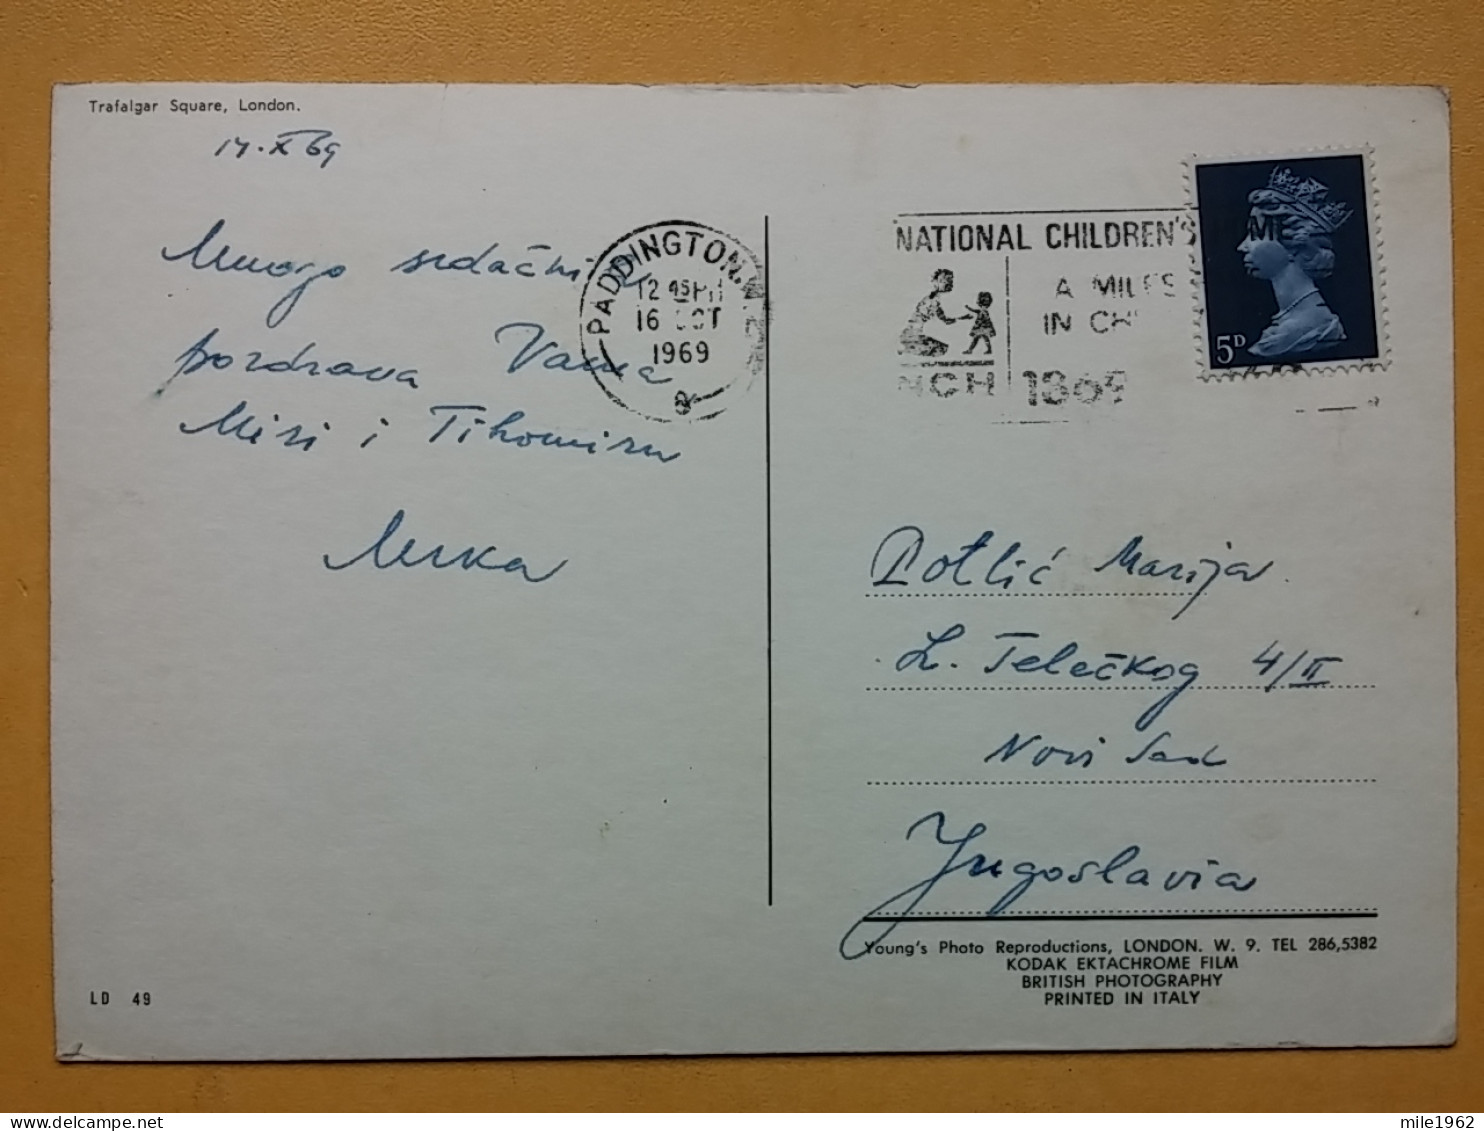 Trafalgar Square, London.
14.X 69
Mnogo srdačnih
pozdrava Vama
Miri i Tihomiru
PADDINGTON.
12 45 PM
16 OCT
1969
NATIONAL CHILDREN'S
A MILES
IN CHI
NCH 1869
5D
Potlić Marija
L. Telečkog 4/II
Novi Sad
Jugoslavia
Young's Photo Reproductions, LONDON. W. 9. TEL 286,5382
KODAK EKTACHROME FILM
BRITISH PHOTOGRAPHY
PRINTED IN ITALY
LD 49
mile1962